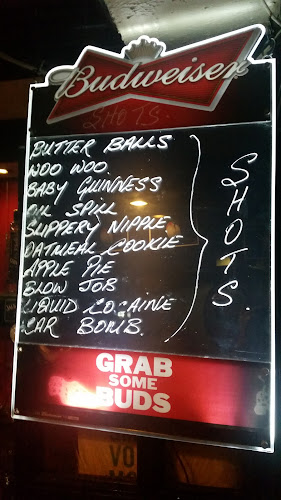 Budweiser
SHOTS
BUTTER BALLS
WOO WOO
BABY GUINNESS
OIL SPILL
SLIPPERY NIPPLE
OATMEAL COOKIE
APPLE PIE
BLOW JOB
LIQUID COCAINE
CAR BOMB.
SHOTS
GRAB
SOME
BUDS